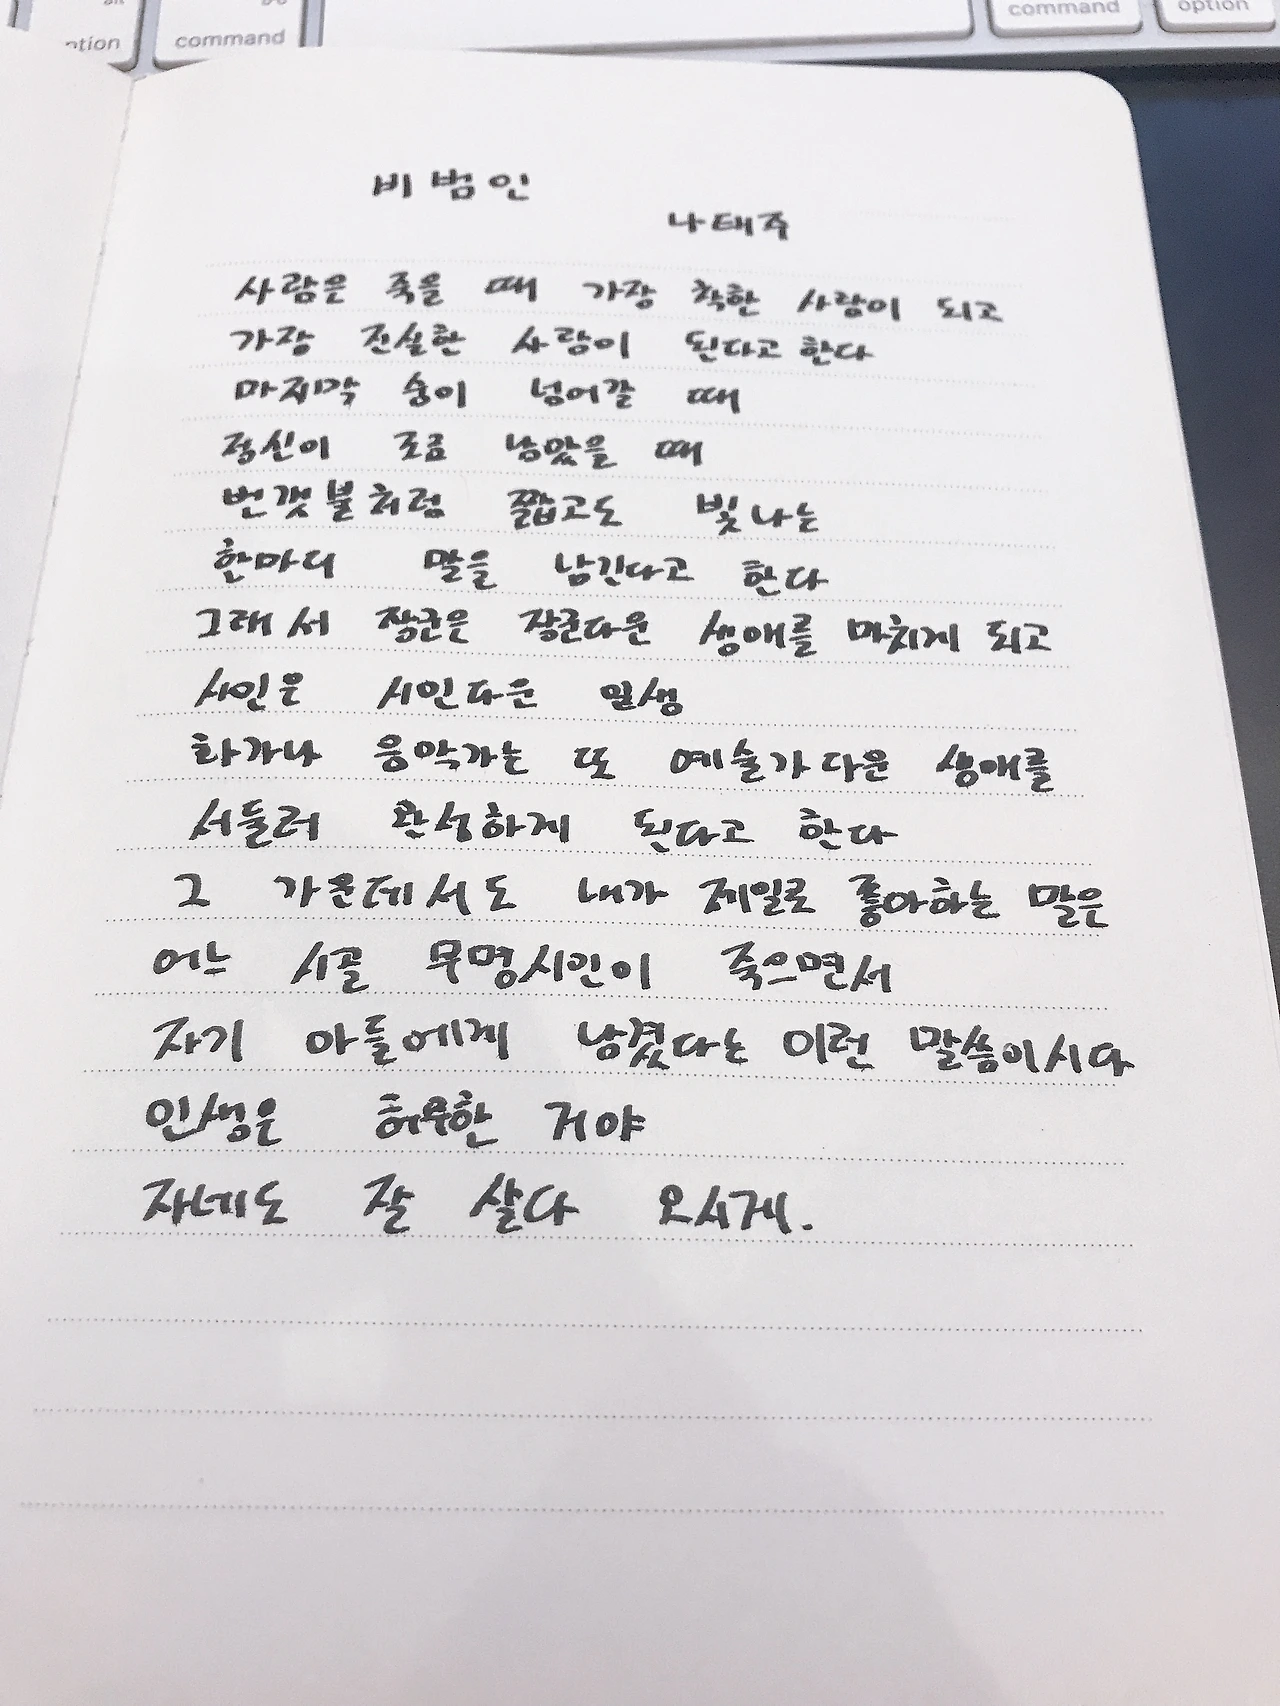 command
option
ntion
command
비범인
나태주
사람은 죽을 때 가장 착한 사람이 되고
가장 진실한 사람이 된다고 한다
마지막 숨이 넘어갈 때
정신이 조금 남았을 때
번갯불처럼 짧고도 빛나는
한마디 말을 남긴다고 한다
그래서 장군은 장군다운 생애를 마치게 되고
시인은 시인다운 일생
화가나 음악가는 또 예술가다운 생애를
서둘러 완성하게 된다고 한다
그 가운데서도 내가 제일로 좋아하는 말은
어느 시골 무명시인이 죽으면서
자기 아들에게 남겼다는 이런 말씀이시다
인생은 허무한 거야
자네도 잘 살다 오시게.